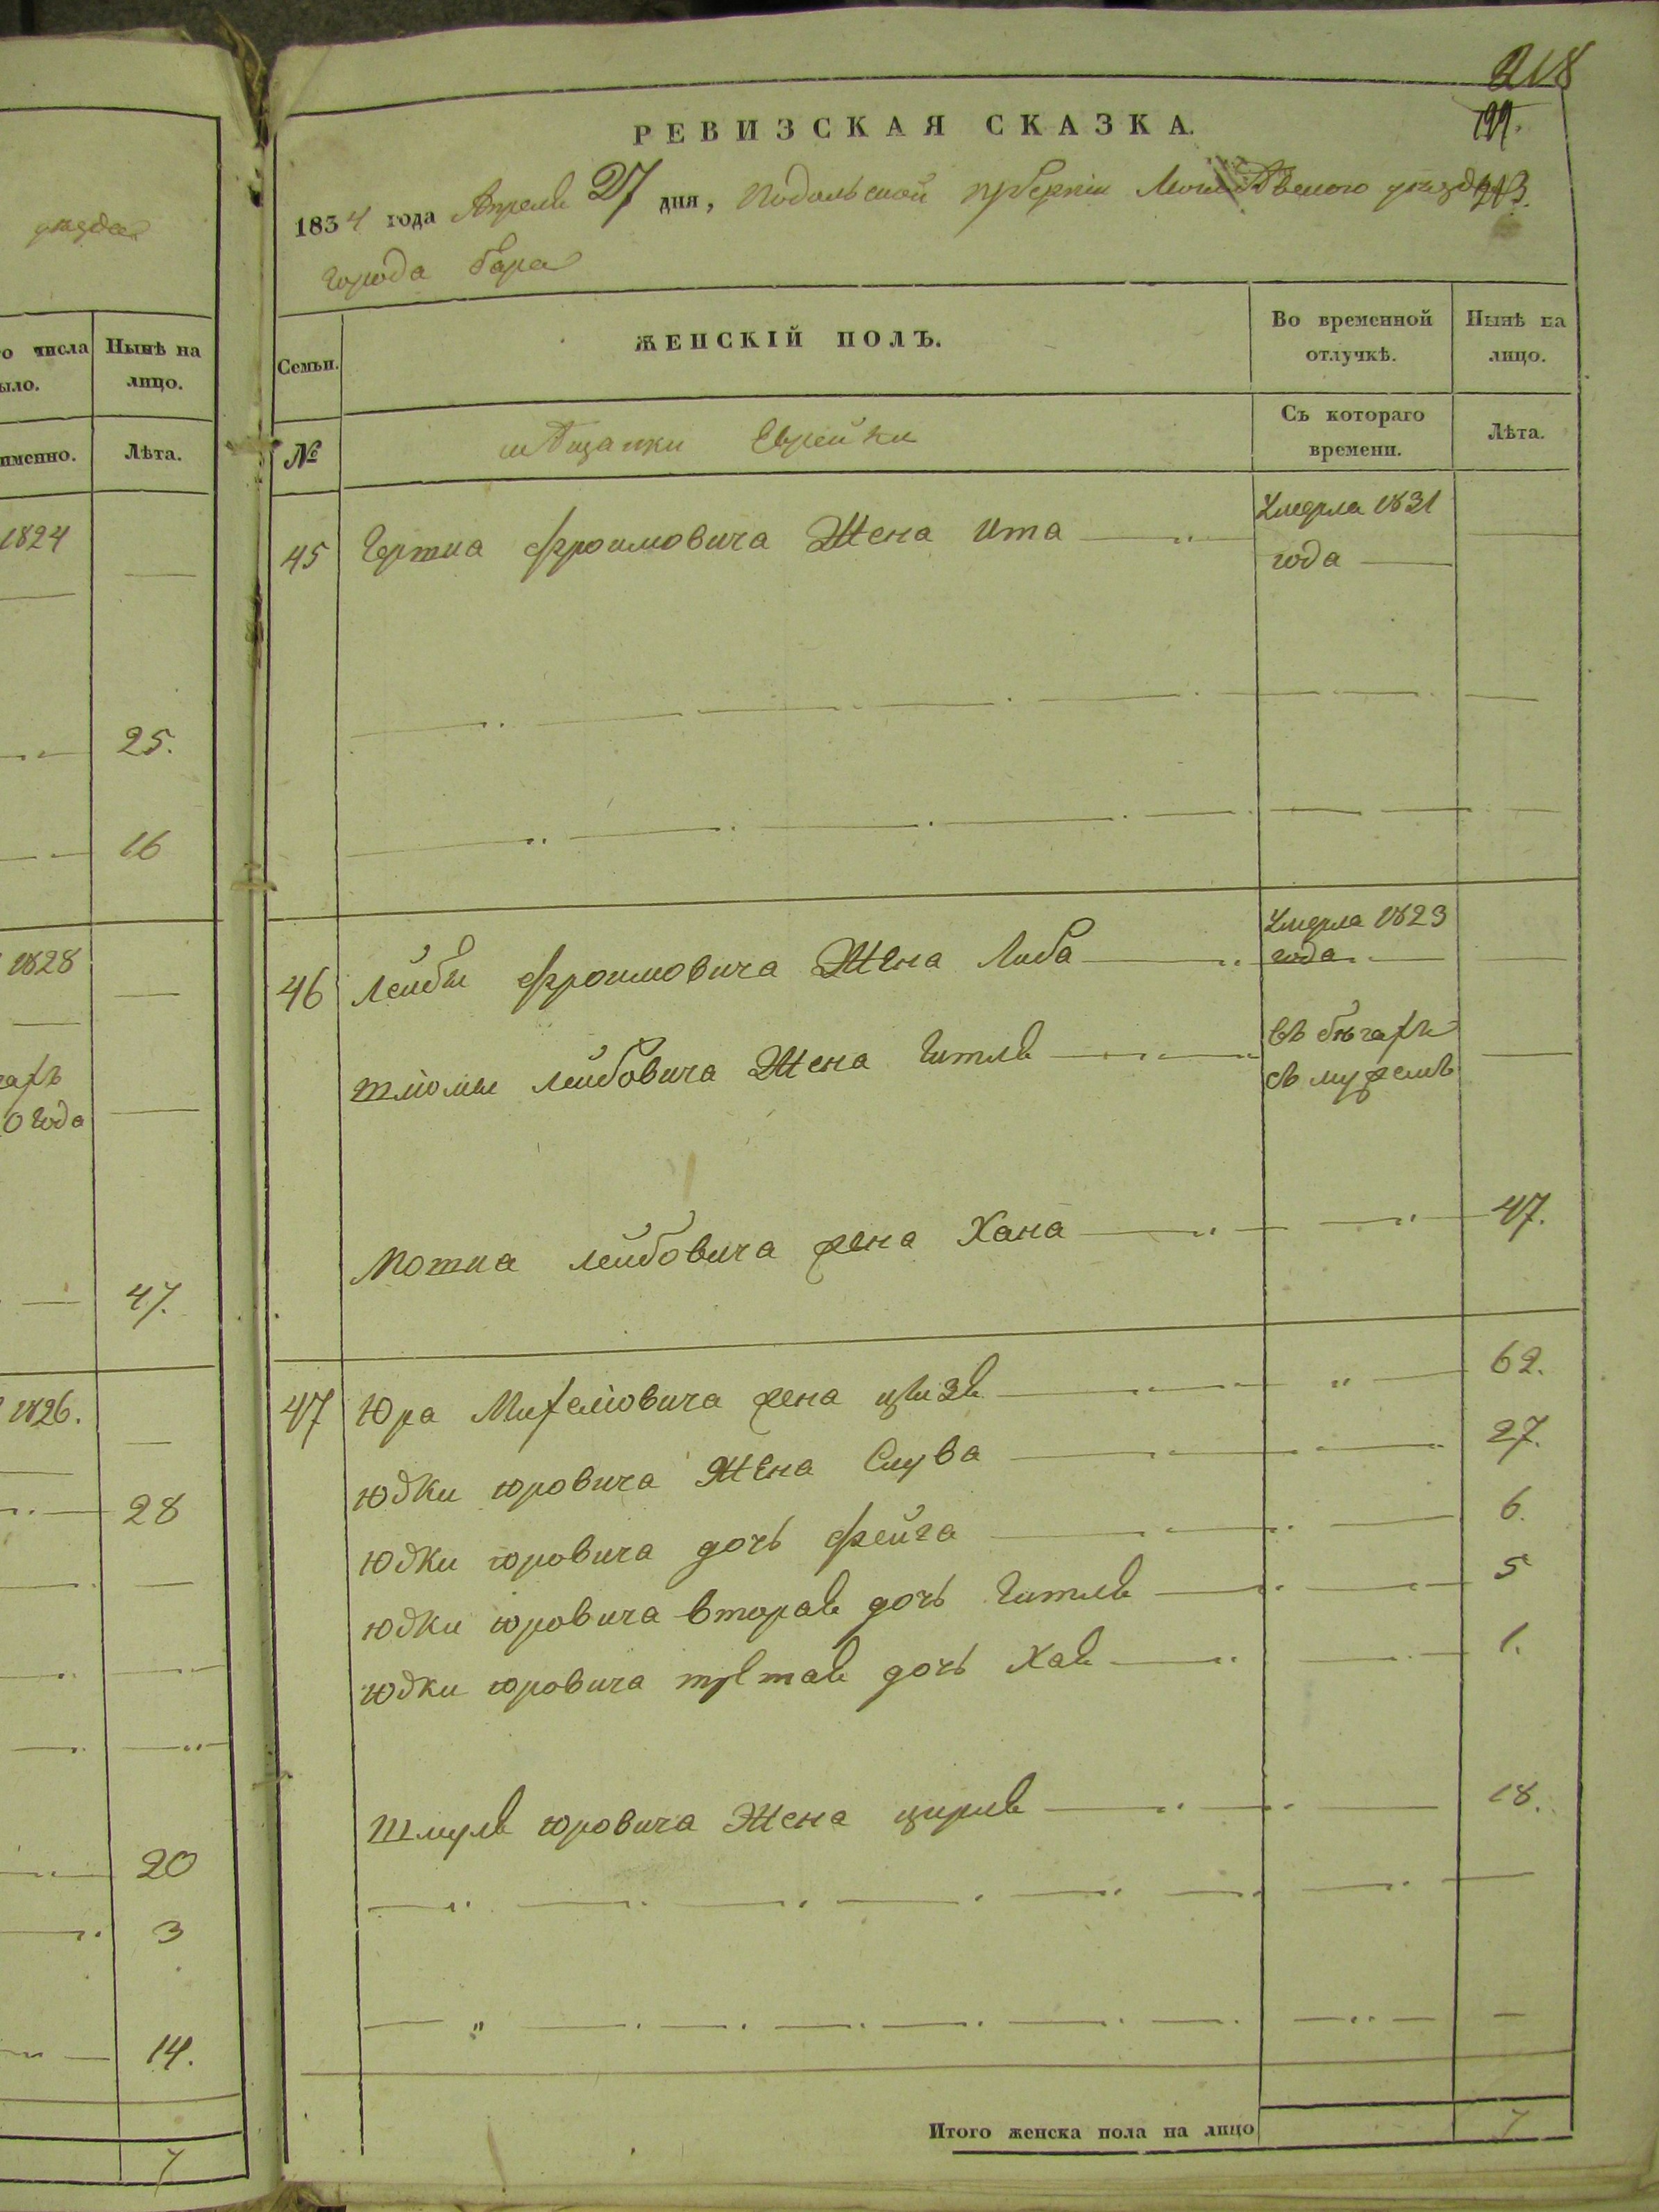 уезда
го числа
было.
Нынѣ на
лицо.
именно.
Лѣта.
1824
25.
16
1828
0 года
47.
1826.
28
20
3
14.
7
218
РЕВИЗСКАЯ СКАЗКА.
1834 года Апреля 27 дня, Подольской губернiи Могилѣвского уезда 213.
города Бара
Семьи.
ЖЕНСКIЙ ПОЛЪ.
Во временной
отлучкѣ.
Нынѣ на
лицо.
№
мѣщанки Еврейки
Съ котораго
времени.
Лѣта.
45 Гершка Фроимовича Жена Ита
Умерла 1831
года
46 Лейбы Фроимовича Жена Либа
Умерла 1823
года
Шлiомы Лейбовича Жена Гитля
въ бѣгахъ
съ мужемъ
Мошка Лейбовича жена Хана 47.
47 Юра Михелiовича жена 62.
Юдки Юровича Жена Слува 27.
Юдки Юровича дочь Фейга 6.
Юдки Юровича вторая дочь Гитля 5
Юдки Юровича третая дочь Хая 1.
Шмуля Юровича Жена Цирля 18.
Итого женска пола на лицо 7